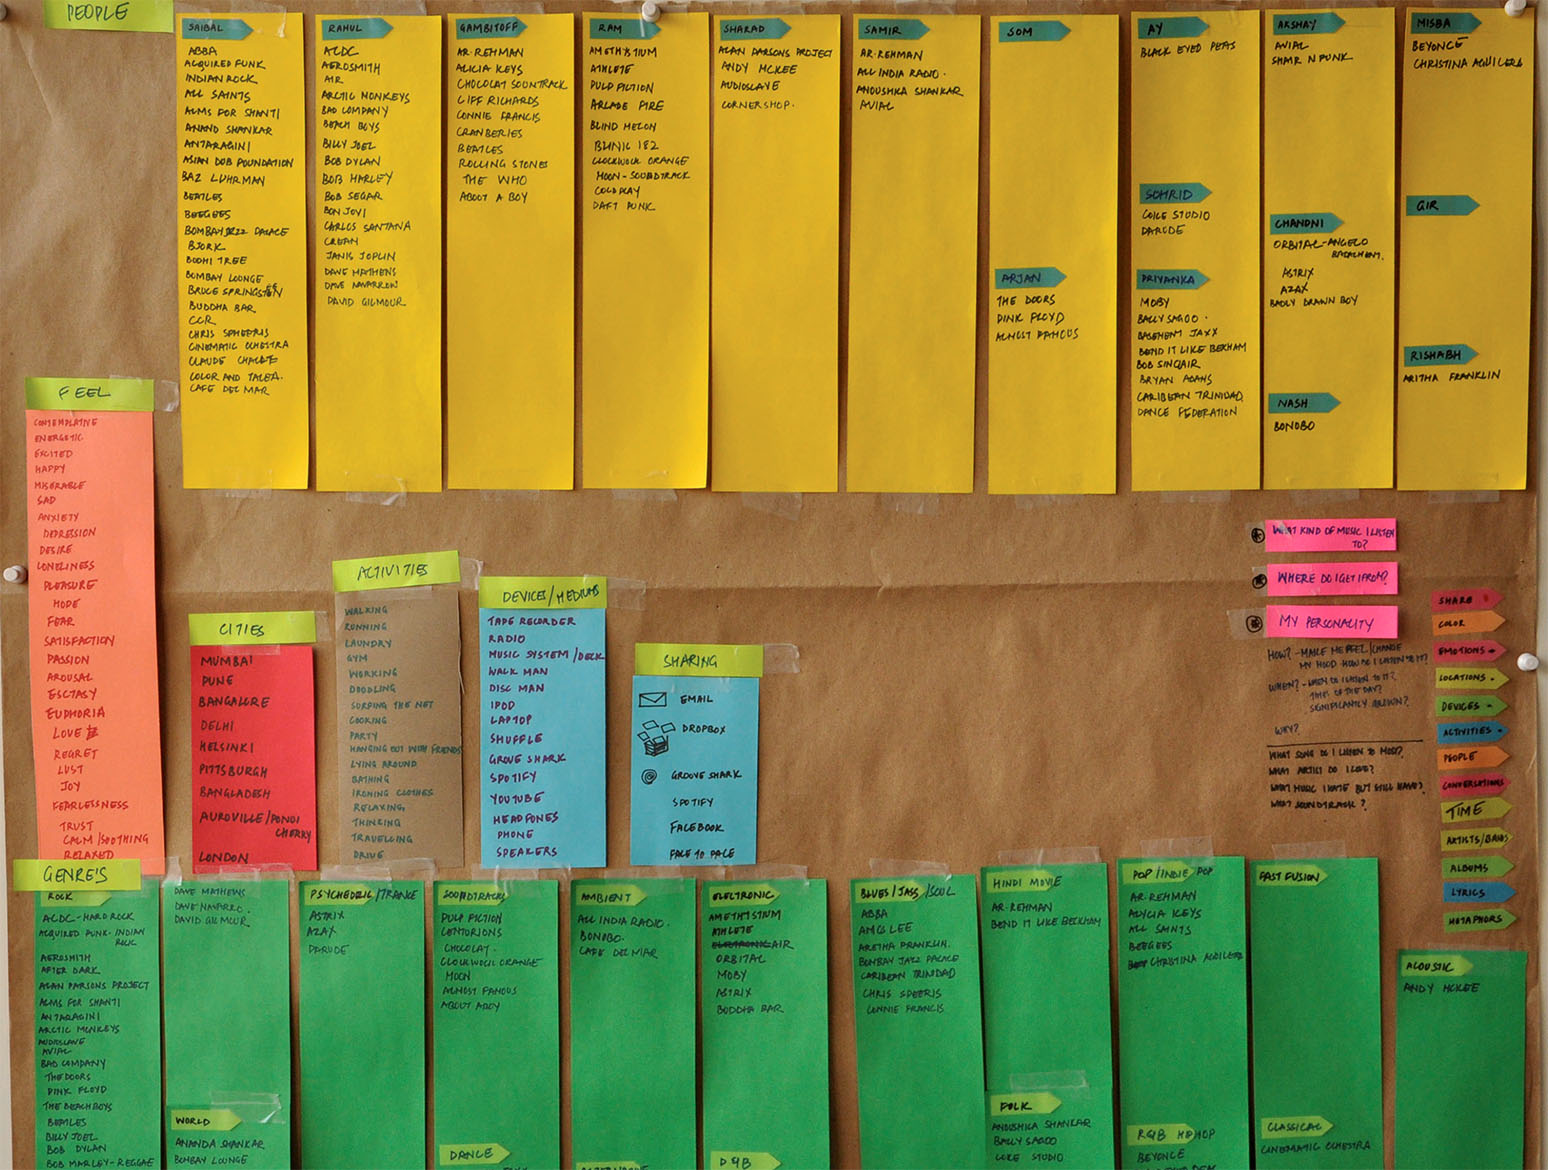 PEOPLE
SAIBAL
ABBA
ACQUIRED FUNK
INDIAN ROCK
ALL SAINTS
ALMS FOR SHANTI
ANAND SHANKAR
ANTARAGINI
ASIAN DUB FOUNDATION
BAZ LUHRMAN
BEATLES
BEEGEES
BOMBAY JAZZ PALACE
BJORK
BODHI TREE
BOMBAY LOUNGE
BRUCE SPRINGSTEEN
BUDDHA BAR
CCR
CHRIS SPHEERIS
CINEMATIC OCHESTRA
CLAUDE CHALLE
COLOR AND TALEA.
CAFE DEL MAR
RAHUL
ACDC
AEROSMITH
AIR
ARCTIC MONKEYS
BAD COMPANY
BEACH BOYS
BILLY JOEL
BOB DYLAN
BOB MARLEY
BOB SEGAR
BON JOVI
CARLOS SANTANA
CREAM
JANIS JOPLIN
DAVE MATHEWS
DAVE NAVARROW
DAVID GILMOUR
GAMBITOFF
AR.REHMAN
ALICIA KEYS
CHOCOLAT SOUNTRACK
CLIFF RICHARDS
CONNIE FRANCIS
CRANBERIES
BEATLES
ROLLING STONES
THE WHO
ABOUT A BOY
RAM
AMETHYSTIUM
ATHLETE
PULP FICTION
ARCADE FIRE
BLIND MELON
BLINK 182
CLOCKWOCK ORANGE
MOON-SOUNDTRACK
COLDPLAY
DAFT PUNK
SHARAD
ALAN PARSONS PROJECT
ANDY MCKEE
AUDIOSLAVE
CORNERSHOP.
SAMIR
AR.REHMAN
ALL INDIA RADIO.
ANOUSHKA SHANKAR
AVIAL
SOM
ARJAN
THE DOORS
PINK FLOYD
ALMOST FAMOUS
AY
BLACK EYED PEAS
SOHRID
COKE STUDIO
DARUDE
PRIYANKA
MOBY
BALLY SAGOO.
BASEMENT JAXX
BEND IT LIKE BEKHAM
BOB SINCLAIR
BRYAN ADAMS
CARIBEAN TRINIDAD
DANCE FEDERATION
AKSHAY
AVIAL
SHAIR N FUNK
CHANDNI
ORBITAL-ANGELO
BADALMENTI.
ASTRIX
AZAX
BADLY DRAWN BOY
NASH
BONOBO
MISBA
BEYONCE
CHRISTINA AGUILERA
GIR
RISHABH
ARITHA FRANKLIN
FEEL
CONTEMPLATIVE
ENERGETIC
EXCITED
HAPPY
MISERABLE
SAD
ANXIETY
DEPRESSION
DESIRE
LONELINESS
PLEASURE
HOPE
FEAR
SATISFACTION
PASSION
AROUSAL
ESCTASY
EUPHORIA
LOVE
REGRET
LUST
JOY
FEARLESSNESS
TRUST
CALM/SOOTHING
RELAXED
CITIES
MUMBAI
PUNE
BANGALORE
DELHI
HELSINKI
PITTSBURGH
BANGLADESH
AUROVILLE/PONDI
CHERKY
LONDON
ACTIVITIES
WALKING
RUNNING
LAUNDRY
GYM
WORKING
DOODLING
SURFING THE NET
COOKING
PARTY
HANGING OUT WITH FRIENDS
LYING AROUND
BATHING
IRONING CLOTHES
RELAXING,
THINKING
TRAVELLING
DRIVE
DEVICES/MEDIUMS
TAPE RECORDER
RADIO
MUSIC SYSTEM/DECK
WALK MAN
DISC MAN
IPOD
LAPTOP
SHUFFLE
GROVE SHARK
SPOTIFY
YOUTUBE
HEADFONES
PHONE
SPEAKERS
SHARING
EMAIL
DROPBOX
GROOVE SHARK
SPOTIFY
FACEBOOK
FACE TO FACE
WHAT KIND OF MUSIC I LISTEN
TO?
WHERE DO I GET I FROM?
MY PERSONALITY
HOW? - MAKE ME FEEL/CHANGE
MY MOOD HOW DO I LISTEN TO IT?
WHEN? - WHEN DO I LISTEN TO IT?
TIMES OF THE DAY?
WHY?
WHAT SONG DO I LISTEN TO MOST?
WHAT ARTIST DO I LOVE?
WHAT MUSIC I HATE BUT STILL HAVE?
WHAT SOUNDTRACK?
SHARE
COLOR
EMOTIONS
LOCATIONS
DEVICES
ACTIVITIES
PEOPLE
CONVERSATIONS
TIME
ARTISTS/BANDS
ALBUMS
LYRICS
METAPHORS
GENRE'S
ROCK
ACDC-HARD ROCK
ACQUIRED FUNK-INDIAN
ROCK
AEROSMITH
AFTER DARK
ALAN PARSONS PROJECT
ALMS FOR SHANTI
ANTARAGINI
ARCTIC MONKEYS
AUDIOSLAVE
AVIAL
BAD COMPANY
THE DOORS
PINK FLOYD
THE BEACH BOYS
BEATLES
BILLY JOEL
BOB DYLAN
BOB MARLEY-REGGAE
DAVE MATHEWS
DAVE NAVARRO.
DAVID GILMOUR
WORLD
ANANDA SHANKAR
BOMBAY LOUNGE
PSYCHEDELIC/TRANCE
ASTRIX
AZAX
DARUDE
SOUNDTRACKS
PULP FICTION
CENTURIONS
CHOCOLAT.
CLOCKWOCK ORANGE
MOON
ALMOST FAMOUS
ABOUT A BOY
DANCE
AMBIENT
ALL INDIA RADIO.
BONOBO.
CAFE DEL MAR
ELECTRONIC
AMETHISTIUM
ATHLETE
ELECTRONIC AIR
ORBITAL
MOBY
ASTRIX
BUDDHA BAR
D&B
BLUES/JASS/SOUL
ABBA
AMOS LEE
ARETHA FRANKLIN.
BOMBAY JAZZ PALACE
CARIBEAN TRINIDAD
CHRIS SPEERIS
CONNIE FRANCIS
HINDI MOVIE
AR.REHMAN
BEND IT LIKE BECKHAM
FOLK
ANOUSHKA SHANKAR
BALLY SAGOO
COKE STUDIO
POP/INDIE POP
AR.REHMAN
ALYCIA KEYS
ALL SAINTS
BEEGEES
CHRISTINA AGUILERA
R&B HIPHOP
BEYONCE
FAST FUSION
CLASSICAL
CINEMATIC OCHESTRA
ACOUSTIC
ANDY MCKEE